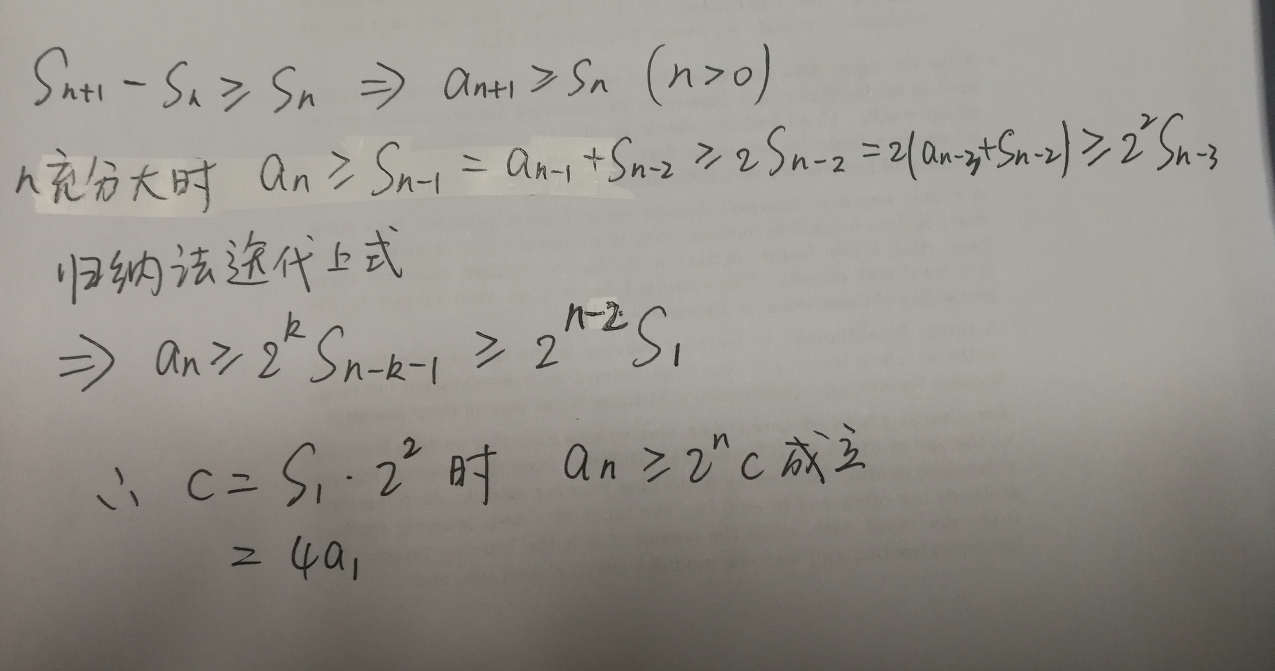 Sn+1 - Sn ≥ Sn ⇒ an+1 ≥ Sn (n>0)
n充分大时 an ≥ Sn-1 = an-1 + Sn-2 ≥ 2Sn-2 = 2(an-2+Sn-2) ≥ 2²Sn-3
归纳法迭代上式
⇒ an ≥ 2^k Sn-k-1 ≥ 2^(n-2) S1
∴ c = S1·2² 时 an ≥ 2^n c 成立
= 4a1